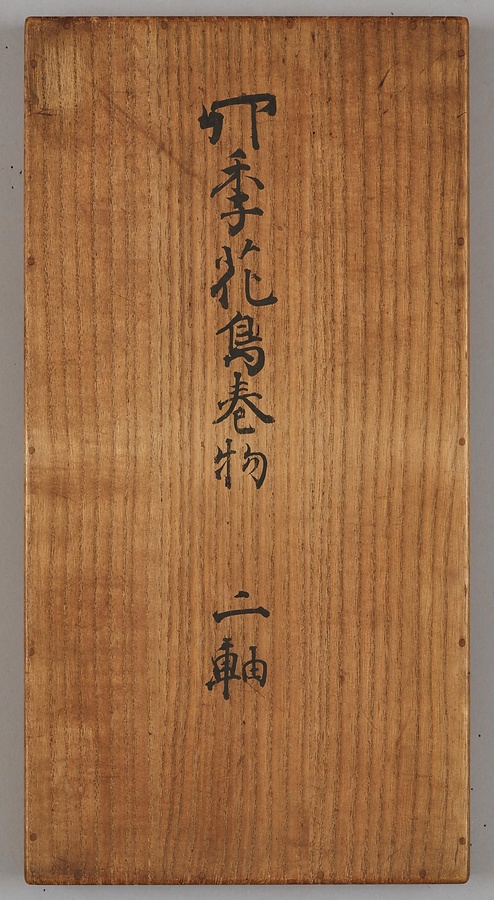 四季花鳥巻物　二軸